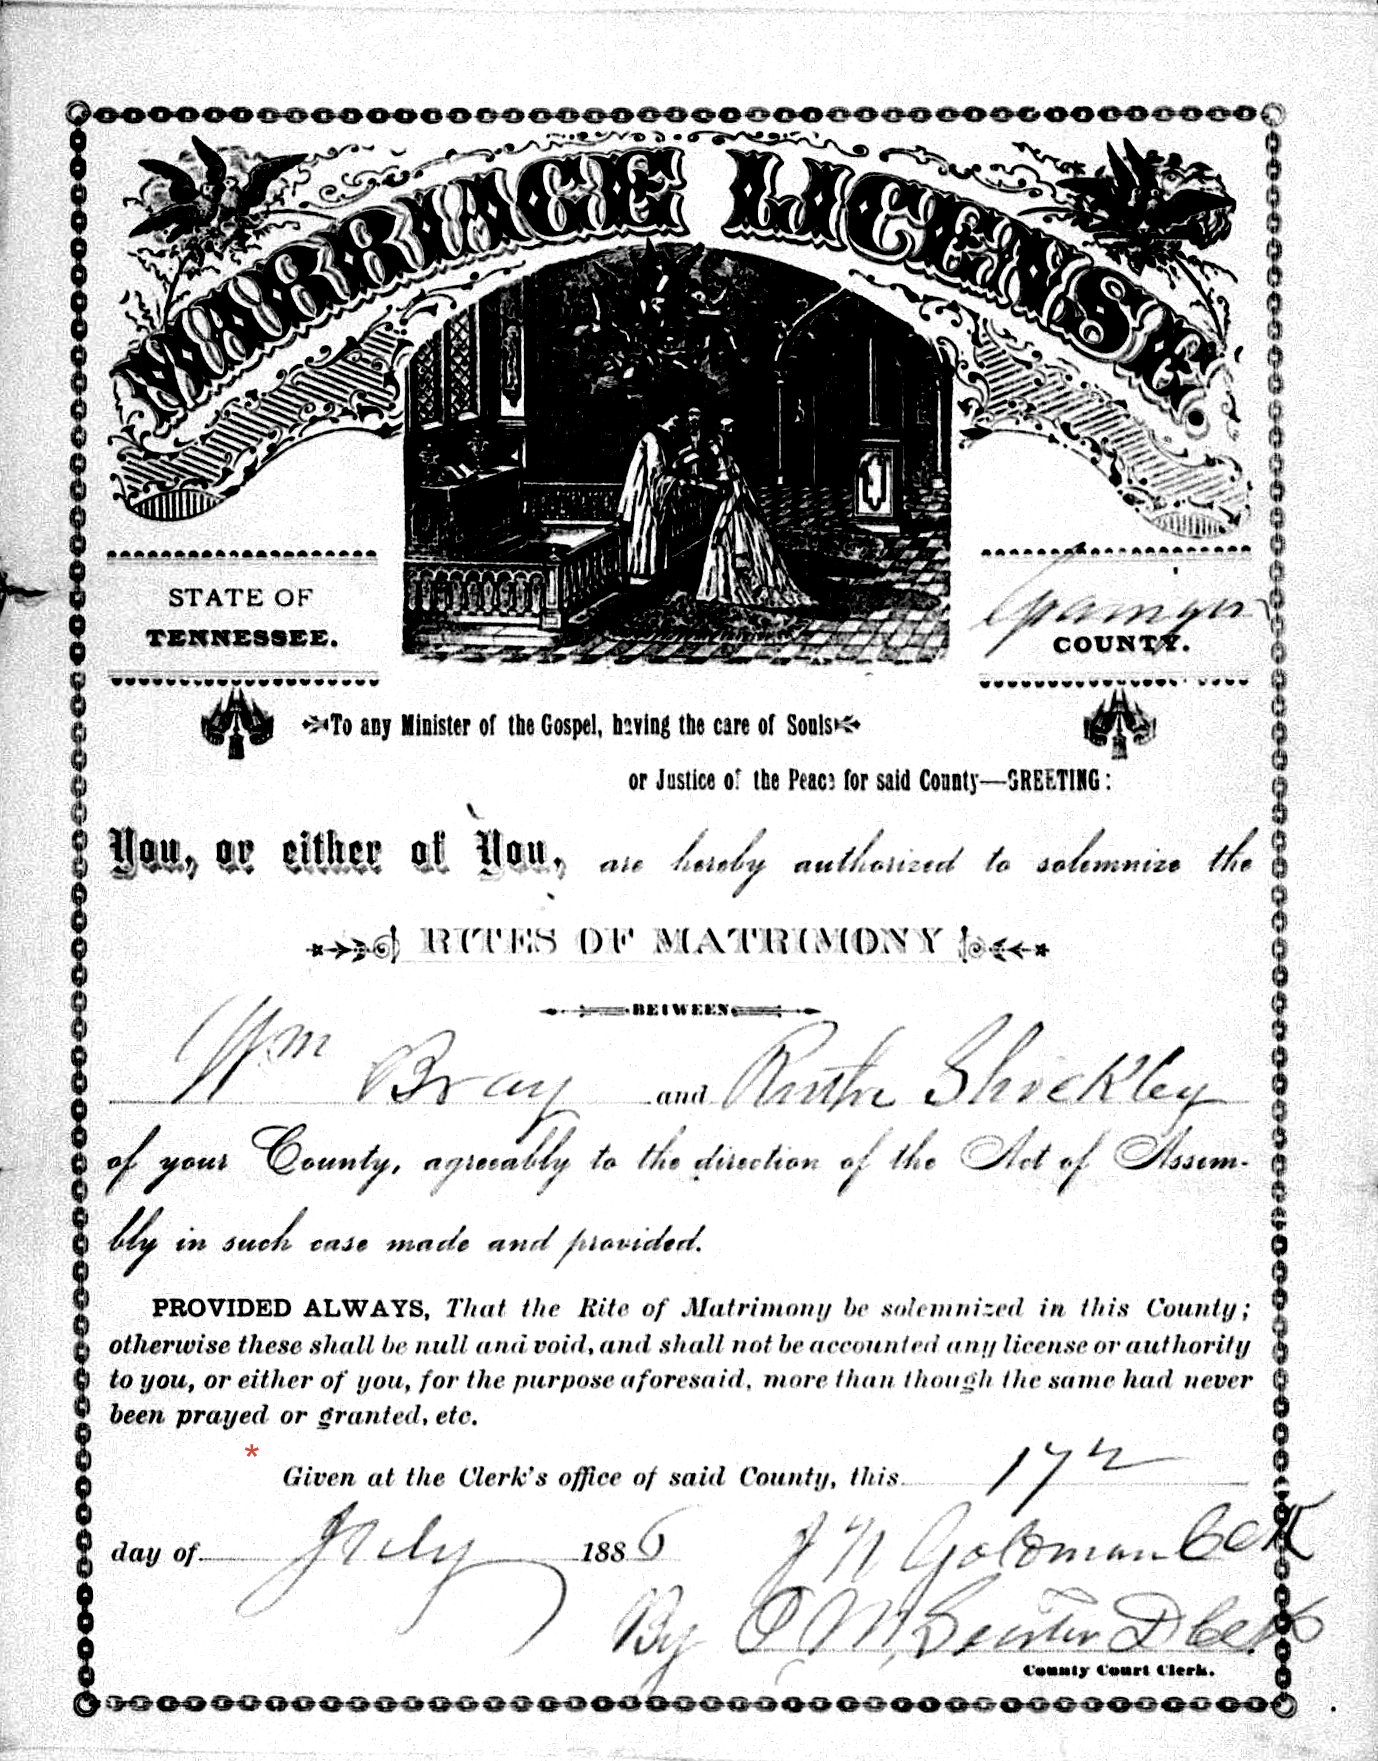 MARRIAGE LICENSE.
STATE OF
TENNESSEE.
Grainger
COUNTY.
To any Minister of the Gospel, having the care of Souls
or Justice of the Peace for said County—GREETING:
You, or either of You, are hereby authorized to solemnize the
RITES OF MATRIMONY
BETWEEN
Wm Bray and Ruthe Shockley
of your County, agreeably to the direction of the Act of Assem-
bly in such case made and provided.
PROVIDED ALWAYS, That the Rite of Matrimony be solemnized in this County;
otherwise these shall be null and void, and shall not be accounted any license or authority
to you, or either of you, for the purpose aforesaid, more than though the same had never
been prayed or granted, etc.
*
Given at the Clerk's office of said County, this 17
day of July 1886 J N Goldman
By
County Court Clerk.